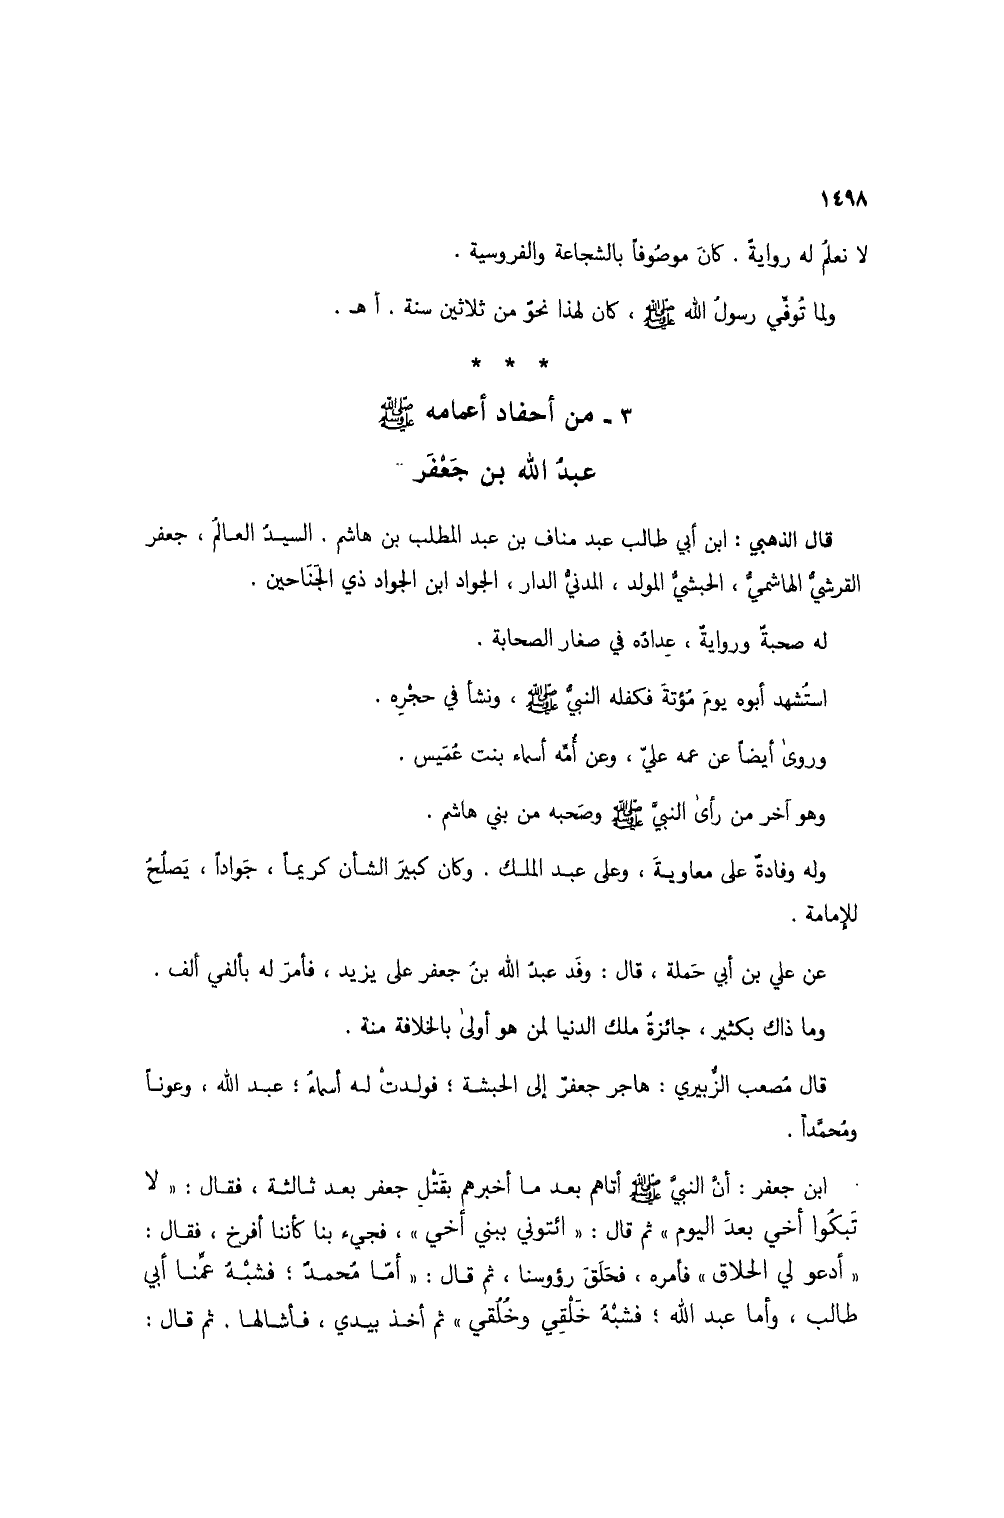 ١٤٩٨
لا نعلمُ له روايةً . كانَ موصُوفاً بالشجاعة والفروسية .
ولما تُوفّي رسولُ الله ﷺ ، كان لهذا نحوٌ من ثلاثين سنة . أ هـ .
* * *
٣ ـ من أحفاد أعمامه ﷺ
عبدُ الله بن جَعْفَر
قال الذهبي : ابن أبي طالب عبد مناف بن عبد المطلب بن هاشم . السيدُ العالمُ ، جعفر
القرشيُّ الهاشميُّ ، الحبشيُّ المولد ، المدنيُّ الدار ، الجواد ابن الجواد ذي الجَنَاحين .
له صحبةٌ وروايةٌ ، عِدادُه في صغار الصحابة .
استُشهد أبوه يومَ مُؤتةَ فكفله النبيُّ ﷺ ، ونشأ في حجْرِه .
وروىٰ أيضاً عن عمه عليّ ، وعن أُمّه أسماء بنت عُمَيس .
وهو آخر من رأىٰ النبيَّ ﷺ وصَحبه من بني هاشم .
وله وفادةٌ على معاويةَ ، وعلى عبد الملك . وكان كبيرَ الشأن كريماً ، جَواداً ، يَصلُحُ
للإمامة .
عن علي بن أبي حَملة ، قال : وفَد عبدُ الله بنُ جعفر على يزيد ، فأمرَ له بألفي ألف .
وما ذاك بكثير ، جائزةُ ملك الدنيا لمن هو أولىٰ بالخلافة منة .
قال مُصعب الزُّبيري : هاجر جعفرٌ إلى الحبشة ؛ فولدتْ له أسماءُ ؛ عبد الله ، وعوناً
ومُحمَّداً .
ابن جعفر : أنْ النبيَّ ﷺ أتاهم بعد ما أخبرهم بقَتْلِ جعفر بعد ثالثة ، فقال : « لا
تَبكُوا أخي بعدَ اليوم » ثم قال : « ائتوني ببني أخي » ، فجيء بنا كأننا أفرخ ، فقال :
« أدعو لي الحلاق » فأمره ، فحَلَقَ رؤوسنا ، ثم قال : « أمّا مُحمدٌ ؛ فشبْهُ عمِّنا أبي
طالب ، وأما عبد الله ؛ فشبْهُ خَلْقِي وخُلُقي » ثم أخذ بيدي ، فأشالها . ثم قال :